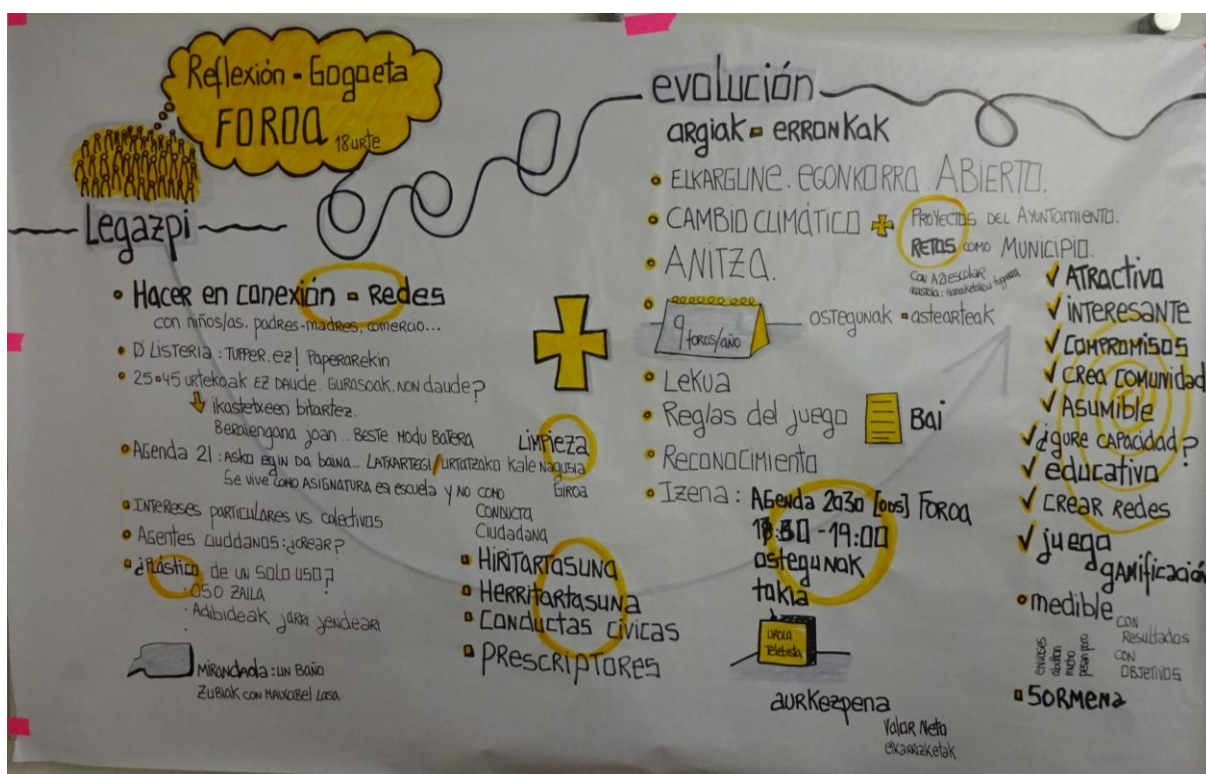 Reflexión - Gogoeta
FOROA 18 urte
Legazpi
Hacer en conexión - Redes
con niños/as. padres-madres, comercio...
D'Listeria: Tupper. ez! Paperarekin
25-45 urtekoak ez daude. Gurasoak. Non daude?
ikastetxeen bitartez.
Beraiengana joan... Beste modu batera
Limpieza
Agenda 21: Asko egin da baina... Latxartegi/Urtatzako kale nagusia
Giroa
Se vive como asignatura en escuela y no como
conducta
ciudadana
Intereses particulares vs colectivos
Agentes ciuddanos: ¿crear?
¿Plástico de un solo uso?
· oso zaila
· Adibideak jarri jendeari
Mirandaola: un baño
Zubiak con Maixabel Lasa
Hiritartasuna
Herritartasuna
Conductas cívicas
Prescriptores
evolución
argiak - erronkak
Elkargune. egonkorra. Abierto.
Cambio climático + Proyectos del Ayuntamiento.
Retos como Municipio.
con A21 escolar
Anitza.
9 foros/año
ostegunak - astearteak
Lekua
Reglas del juego
Bai
Reconocimiento
Izena: Agenda 2030 [ODS] Foroa
-19:00
ostegunak
takia
Urola
Telebista
aurkezpena
Valor Neto
elkarrizketak
Atractivo
interesante
compromisos
crea comunidad
Asumible
¿gure capacidad?
educativo
crear redes
juego
gamificación
medible
con
Resultados
con
objetivos
envases
abultan
mucho
pesan poco
Sormena